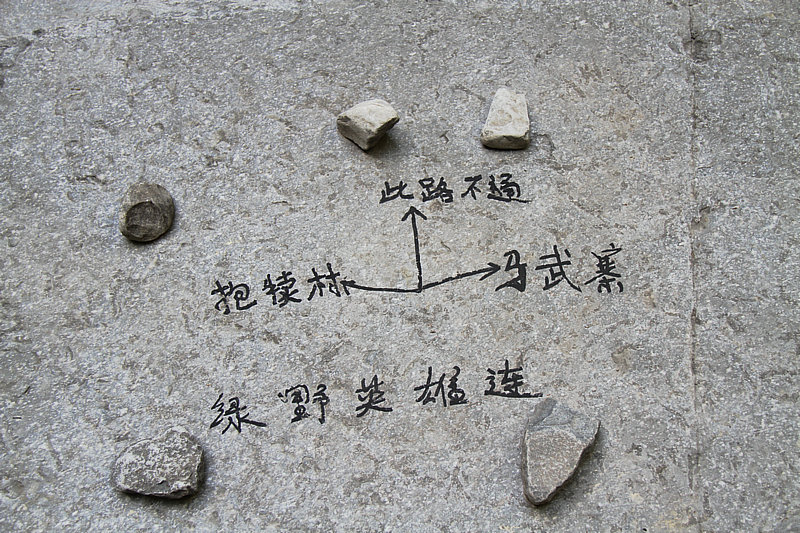 此路不通
抱犊村 马武寨
绿野英雄连